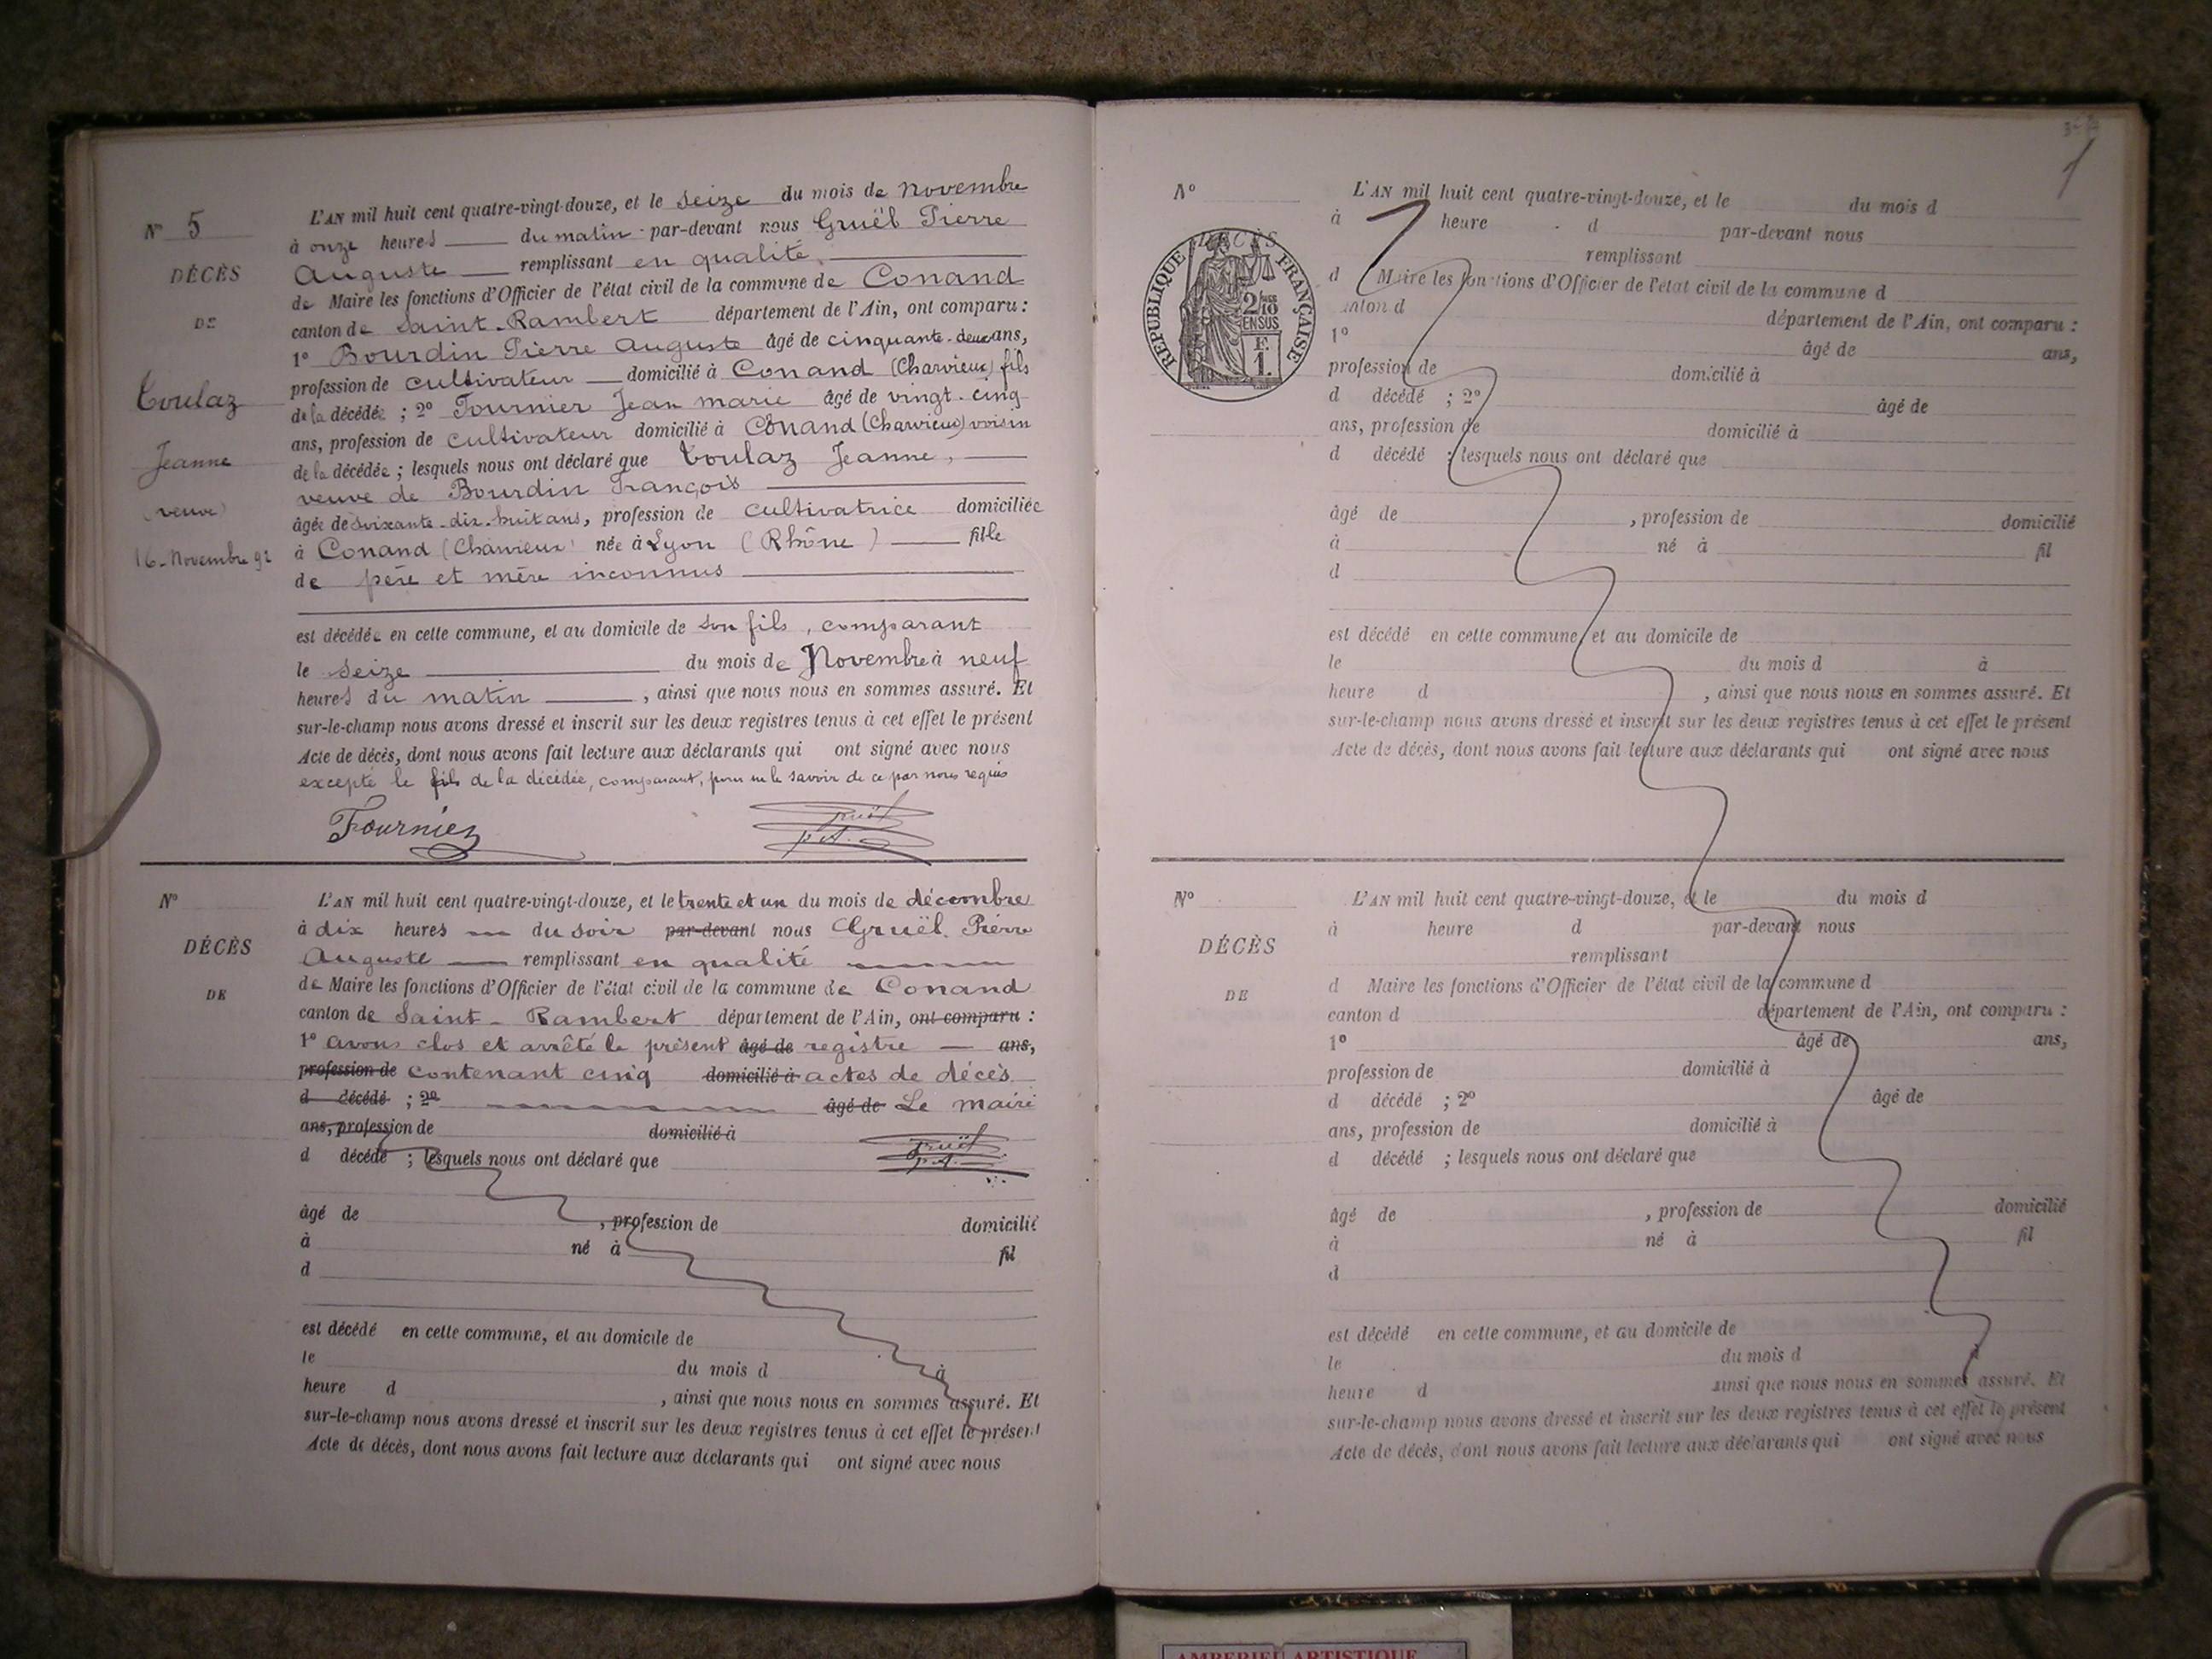 N° 5
DÉCÈS
DE
Coulaz
Jeanne
(veuve)
16. Novembre 92
L'AN mil huit cent quatre-vingt-douze, et le seize du mois de Novembre
à onze heures du matin par-devant nous Gruël Pierre
Auguste remplissant en qualité
de Maire les fonctions d'Officier de l'état civil de la commune de Conand
canton de Saint-Rambert département de l'Ain, ont comparu :
1° Bourdin Pierre Auguste âgé de cinquante-deux ans,
profession de cultivateur domicilié à Conand (Charvieux) fils
de la décédée ; 2° Fournier Jean marie âgé de vingt-cinq
ans, profession de cultivateur domicilié à Conand (Charvieux) voisin
de la décédée ; lesquels nous ont déclaré que Coulaz Jeanne,
veuve de Bourdin François
âgée de soixante-dix-huit ans, profession de cultivatrice domiciliée
à Conand (Charvieux) née à Lyon (Rhône) fille
de père et mère inconnus
est décédée en cette commune, et au domicile de son fils, comparant
le seize du mois de Novembre à neuf
heures du matin, ainsi que nous nous en sommes assuré. Et
sur-le-champ nous avons dressé et inscrit sur les deux registres tenus à cet effet le présent
Acte de décès, dont nous avons fait lecture aux déclarants qui ont signé avec nous
excepté le fils de la décédée, comparant, pour ne le savoir de ce par nous requis
Fournier
Gruël
p A.
N°
DÉCÈS
DE
L'AN mil huit cent quatre-vingt-douze, et le trente et un du mois de décembre
à dix heures du soir par-devant nous Gruël Pierre
Auguste remplissant en qualité
de Maire les fonctions d'Officier de l'état civil de la commune de Conand
canton de Saint-Rambert département de l'Ain, ont comparu :
1° avons clos et arrêté le présent âgé de registre ans,
profession de contenant cinq domicilié à actes de décès
d décédé ; 2° âgé de Le maire
ans, profession de domicilié à
Gruël
p A.
d décédé ; lesquels nous ont déclaré que
âgé de , profession de domicilié
à né à fil
d
est décédé en cette commune, et au domicile de
le du mois d à
heure d , ainsi que nous nous en sommes assuré. Et
sur-le-champ nous avons dressé et inscrit sur les deux registres tenus à cet effet le présent
Acte de décès, dont nous avons fait lecture aux déclarants qui ont signé avec nous
1
N°
DÉCÈS
RÉPUBLIQUE FRANÇAISE
2/10
EN SUS
F.
1.
L'AN mil huit cent quatre-vingt-douze, et le du mois d
à heure d par-devant nous
remplissant
d Maire les fonctions d'Officier de l'état civil de la commune d
canton d département de l'Ain, ont comparu :
1° âgé de ans,
profession de domicilié à
d décédé ; 2° âgé de
ans, profession de domicilié à
d décédé ; lesquels nous ont déclaré que
âgé de , profession de domicilié
à né à fil
d
est décédé en cette commune, et au domicile de
le du mois d à
heure d , ainsi que nous nous en sommes assuré. Et
sur-le-champ nous avons dressé et inscrit sur les deux registres tenus à cet effet le présent
Acte de décès, dont nous avons fait lecture aux déclarants qui ont signé avec nous
N°
DÉCÈS
DE
L'AN mil huit cent quatre-vingt-douze, et le du mois d
à heure d par-devant nous
remplissant
d Maire les fonctions d'Officier de l'état civil de la commune d
canton d département de l'Ain, ont comparu :
1° âgé de ans,
profession de domicilié à
d décédé ; 2° âgé de
ans, profession de domicilié à
d décédé ; lesquels nous ont déclaré que
âgé de , profession de domicilié
à né à fil
d
est décédé en cette commune, et au domicile de
le du mois d à
heure d ainsi que nous nous en sommes assuré. Et
sur-le-champ nous avons dressé et inscrit sur les deux registres tenus à cet effet le présent
Acte de décès, dont nous avons fait lecture aux déclarants qui ont signé avec nous
AMBERIEU ARTISTIQUE